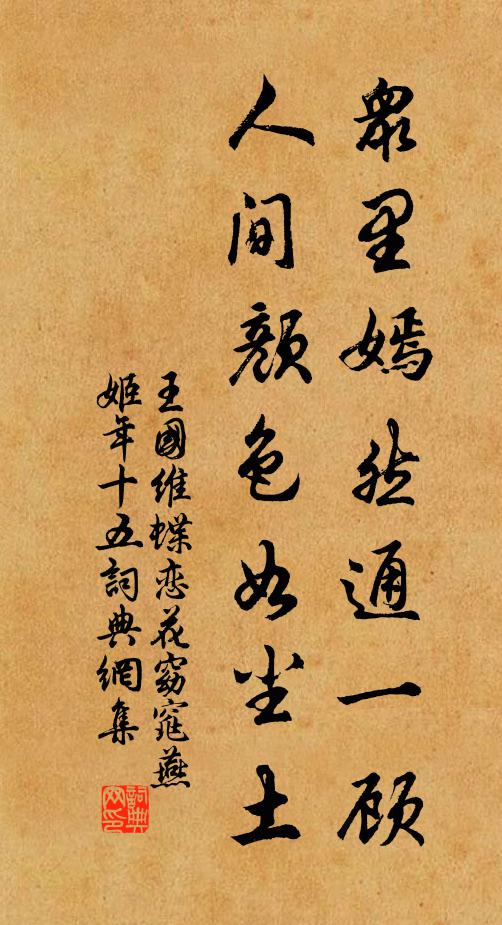 眾里嫣然通一顾
人间顏色如尘土
王國維蝶恋花窈窕燕
姬年十五詞典網集
詞典网印